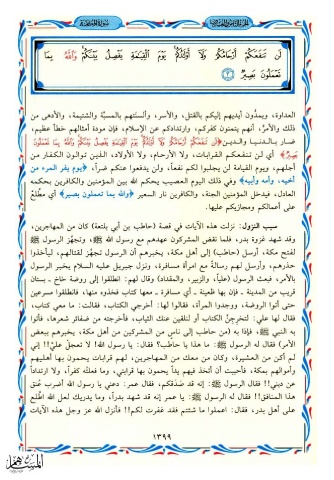 الجزء الثامن والعشرون
سورة الممتحنة
لَن تَنفَعَكُمْ أَرْحَامُكُمْ وَلَا أَوْلَادُكُمْ يَوْمَ الْقِيَامَةِ يَفْصِلُ بَيْنَكُمْ وَاللَّهُ بِمَا
تَعْمَلُونَ بَصِيرٌ ٣
العداوة، ويمدُّون أيديهم إليكم بالقتل، والأسر، وألسنتهم بالمسبَّة والشتيمة، والأدهى من
ذلك والأمرُّ، أنهم يتمنون كفركم، وارتدادكم عن الإسلام، فإن مودة أمثالهم خطأ عظيم،
ضار بالدنيا والدين ﴿لَن تَنفَعَكُمْ أَرْحَامُكُمْ وَلَا أَوْلَادُكُمْ يَوْمَ الْقِيَامَةِ يَفْصِلُ بَيْنَكُمْ وَاللَّهُ بِمَا تَعْمَلُونَ
بَصِيرٌ﴾ أي لن تنفعكم القرابات، ولا الأرحام، ولا الأولاد، الذين توالون الكفار من
أجلهم، ويوم القيامة لن يجلبوا لكم نفعاً، ولن يدفعوا عنكم ضراً، ﴿يوم يفر المرء من
أخيه، وأمه وأبيه﴾ وفي ذلك اليوم العصيب يحكم الله بين المؤمنين والكافرين بحكمه
العادل، فيدخل المؤمنين الجنة، والكافرين نار السعير ﴿والله بما تعملون بصير﴾ أي مطَّلعٌ
على أعمالكم ومجازيكم عليها.
سبب النزول: نزلت هذه الآيات في قصة (حاطب بن أبي بلتعة) كان من المهاجرين،
وقد شهد غزوة بدر، فلما نقض المشركون عهدهم مع رسول الله ﷺ، وتجهَّز الرسول ﷺ
لفتح مكة، أرسل (حاطب) إلى أهل مكة، يخبرهم أن الرسول تجهَّز لقتالهم، ليأخذوا
حذرهم، وأرسل لهم رسالةً مع امرأة مسافرة، ونزل جبريل عليه السلام يخبر الرسول
بالأمر، فبعث الرسول (علياً، والزبير، والمقداد) وقال لهم: انطلقوا إلى روضة خاخ ـ بستان
قريب من المدينة ـ فإن بها ظعينة ـ أي مسافرة ـ معها كتاب فخذوه منها، فانطلقوا مسرعين
حتى أتوا الروضة، ووجدوا المرأة، فقالوا لها: أخرجي الكتاب، فقالت: ما معي كتاب،
فقال لها علي: لتخرجنَّ الكتاب أو لنلقين عنك الثياب، فأخرجته من ضفائر شعرها، فأتوا
به النبي ﷺ، فإذا به (من حاطب إلى ناسٍ من المشركين من أهل مكة، يخبرهم ببعض
الأمر) فقال له الرسول ﷺ: ما هذا يا حاطب؟ فقال: يا رسول الله! لا تعجل عليَّ!! إني
لم أكن من العشيرة، وكان من معك من المهاجرين، لهم قرابات يحمون بها أهليهم
وأموالهم بمكة، فأحببت أن أتخذ فيهم يداً يحمون بها قرابتي، وما فعلته كفراً، ولا ارتداداً
عن ديني!! فقال الرسول ﷺ: إنه قد صَدَقكم، فقال عمر: دعني يا رسول الله أضرب عُنق
هذا المنافق!! فقال له الرسول ﷺ: يا عمر إنه قد شهد بدراً، وما يدريك لعل الله اطَّلع
على أهل بدر، فقال: اعملوا ما شئتم فقد غفرت لكم!! فأنزل الله عز وجل هذه الآيات
١٣٩٩